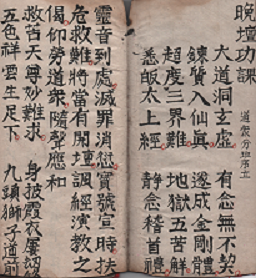 晚壇功課
道眾分班序立
大道洞玄虛 有念無不契
鍊質入仙真 遂成金剛體
超度三界難 地獄五苦解
悉皈太上經 靜念稽首禮
靈音到處滅罪消愆寶號宣時扶
危救難將當有開壇調經演教之
偈仰勞道眾隨聲應和
救苦天尊妙難求 身披霞衣屢劫
五色祥雲生足下 九頭獅子道前